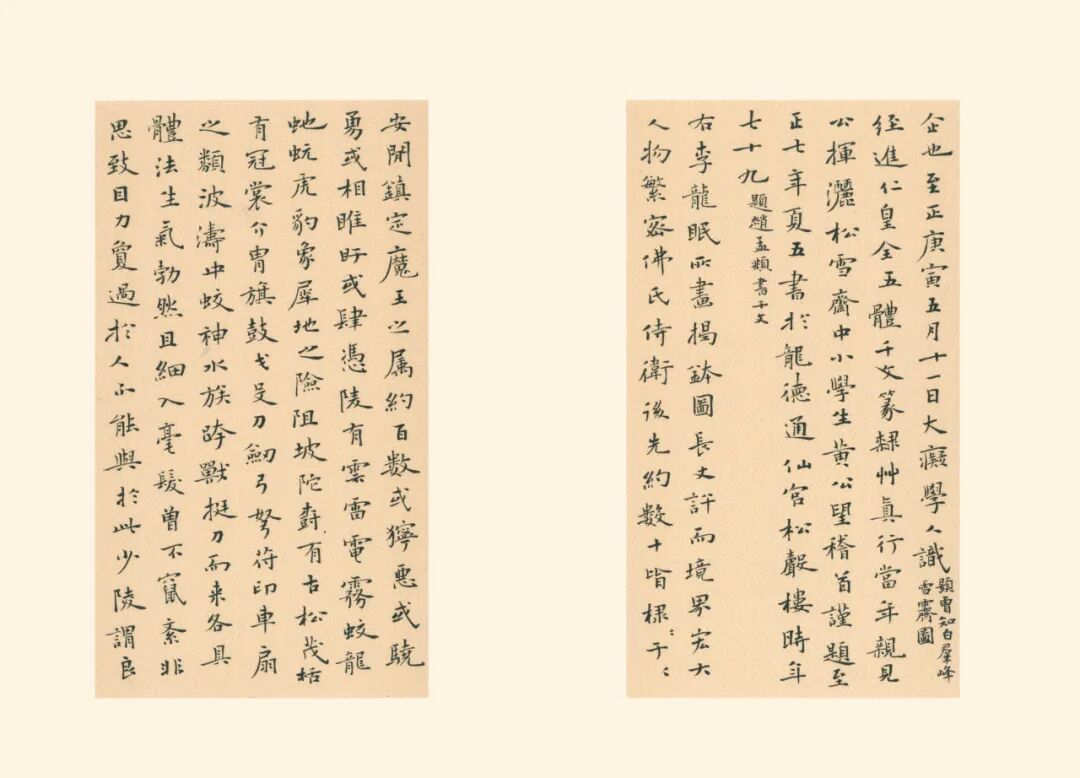 企也至正庚寅五月十一日大癡學人識 題曹知白羣峰雪霽圖
經進仁皇全五體千文篆隸艸真行當年親見
公揮灑松雪齋中小學生黃公望稽首謹題至
正七年夏五書於龍德通仙宮松聲樓時年
七十九 題趙孟頫書千文
右李龍眠所畫揭鉢圖長丈許而境界宏大
人物繁密佛氏侍衛後先約數十皆棣〻于〻
安閒鎮定魔王之属約百數或獰惡或驍
勇或相睢盱或肆憑陵有雲雷電霧蛟龍
虵蚖虎豹象犀地之險阻坡陀森有古松茂栝
有冠裳介胄旗鼓戈殳刀劒弓弩符印車扇
之類波濤中蛟神水族跨獸挺刀而来各具
體法生氣勃然且細入毫髮曾不竄紊非
思致目力敻過於人不能與於此少陵謂良